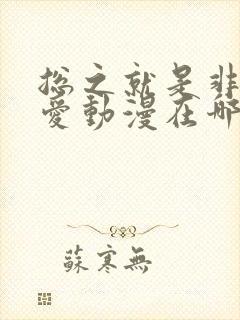 總之就是非
愛動漫在哪
蘇寒無